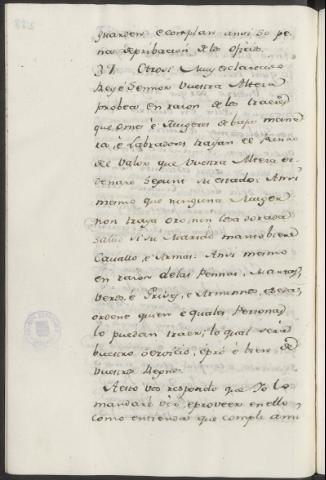 guarden e complan ansi so pe
na de pribacion de los oficios.
37 Otrosi Muy esclarecido
Rey e Sennor Vuestra Alteza
probea en razon de los traeres
que omes è Mugeres de baja mane
ra, è Labradores trayan el
de valor que Vuestra Alteza or
denare segunt su estado: Ansi
mesmo que ninguna Muger
non traya oro, nin cosa dorada
salvo si su Marido mantobiere
Cavallo, è Armas. Ansi mesmo
en razon de las Pennas, Martas,
Veros, è Grises, è Arminnos,
ordene quien è quales Personas
lo puedan traer; lo qual será
vuestro servicio, è pro è bien de
Vuestros Regnos.
A esto vos respondo que Yo lo
mandaré ver, è proveer en ello
como entienda que cumple a mi